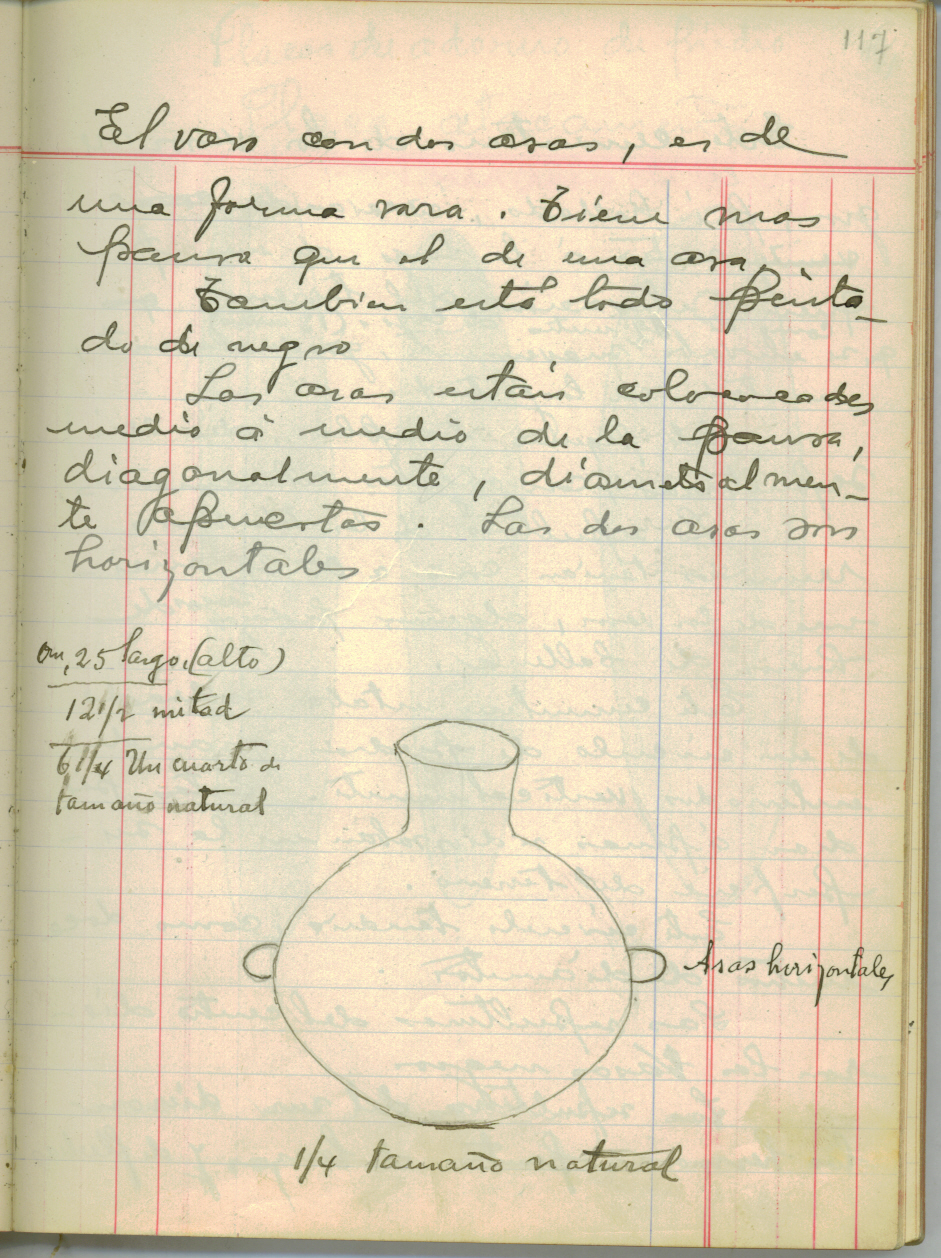 117
El vaso con dos asas, es de
una forma rara. Tiene mas
panza que el de una asa.
Tambien está todo pinta-
do de negro
Las asas están colococadas
medio á medio de la panza,
diagonalmente, diametralmen-
te opuestas. Las dos asas son
horizontales
0m,25 largo, (alto)
12 1/2 mitad
6 1/4 Un cuarto de
tamaño natural
Asas horizontales
1/4 tamaño natural